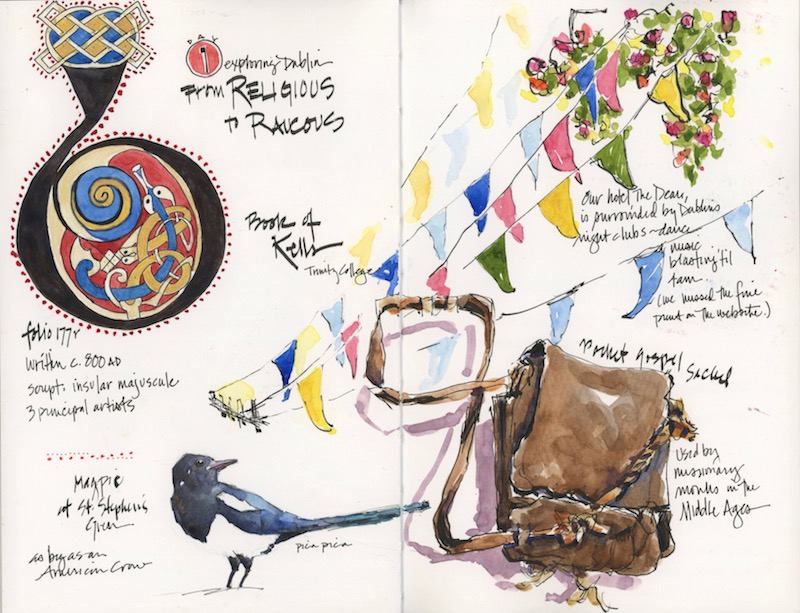 DAY
1
exploring Dublin
From RELIGIOUS
to RAUCOUS
Book of
Kells
Trinity College
folio 177r
written c. 800 AD
script: insular majuscule
3 principal artists
Magpie
at St. Stephen's
Green
as big as an
American Crow
pica pica
Our hotel The Dean,
is surrounded by Dublin's
night clubs ~ dance
music
blasting 'til
4am
(we missed the fine
print on the website.)
Pocket Gospel
Satchel
Used by
missionary
monks in the
Middle Ages